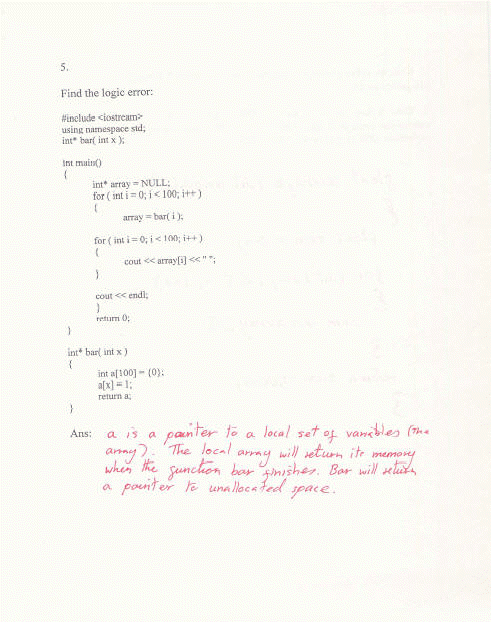 5.
Find the logic error:
#include <iostream>
using namespace std;
int* bar( int x );
int main()
{
int* array = NULL;
for ( int i = 0; i < 100; i++ )
{
array = bar( i );
for ( int i = 0; i < 100; i++ )
{
cout << array[i] << " ";
}
cout << endl;
}
return 0;
}
int* bar( int x )
{
int a[100] = {0};
a[x] = 1;
return a;
}
Ans: a is a pointer to a local set of variables (the
array). The local array will return its memory
when the function bar finishes. Bar will return
a pointer to unallocated space.